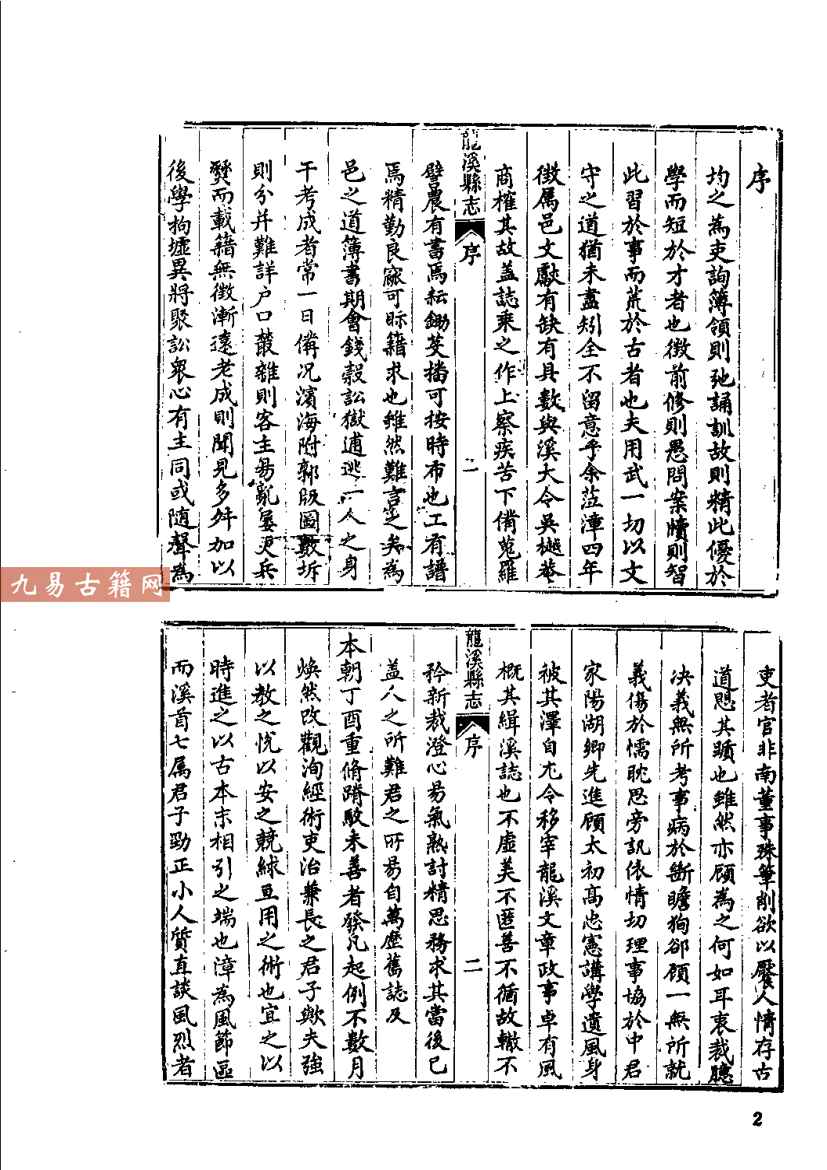 序
均之為吏詢簿領則弛誦訓故則精此優於
學而短於才者也徴前修則愚問案牘則智
此習於事而荒於古者也夫用武一切以文
守之道猶未盡矧全不留意乎余蒞漳四年
徴属邑文獻有缺有具數與溪大令吳樾菴
商榷其故盖誌乗之作上察疾苦下備蒐羅
龍溪縣志 序 一
譬農有書焉耘鋤芟播可按時布也工有譜
焉精勤良窳可眎籍求也雖然難言之矣為
邑之道簿書期會錢榖訟獄逋逃一人之身
干考成者常一日備况濱海附郭版圖數坼
則分并難詳户口叢雜則客主易亂屡更兵
燹而載籍無徴漸遠老成則聞見多舛加以
後學拘墟異將聚訟衆心有主同或随聲為
吏者官非南董事殊筆削欲以饜人情存古
道恖其躓也雖然亦顧為之何如耳衷裁聽
决義無所考事病於断瞻狥卻顧一無所就
義傷於懦耽思旁訊依情切理事協於中君
家陽湖鄉先進顧太初髙忠憲講學遺風身
被其澤自尤令移宰龍溪文章政事卓有風
概其緝溪誌也不虚美不匿善不循故轍不
龍溪縣志 序 二
矜新裁澄心易氣熟討精思務求其當後已
盖人之所難君之所易自萬歷舊誌及
本朝丁酉重脩蹐駁未善者發凡起例不數月
煥然改觀洵經術吏治兼長之君子歟夫強
以教之悦以安之競絿互用之術也宜之以
時進之以古本末相引之端也漳為風節區
而溪首七属君子勁正小人質直談風烈者
九易古籍网
2